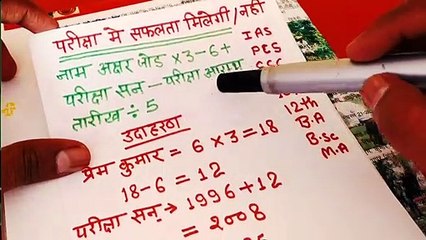 परीक्षा मे सफलता मिलेगी/नही
नाम अक्षर जोड़ ×3-6+
परीक्षा सन - परीक्षा आरम्भ
तारीख ÷ 5
IAS
PCS
SSC
12-th
B.A
B.Sc
M.A
उदाहरण
प्रेम कुमार = 6 × 3 = 18
18-6 = 12
परीक्षा सन् → 1996 + 12
= 2008